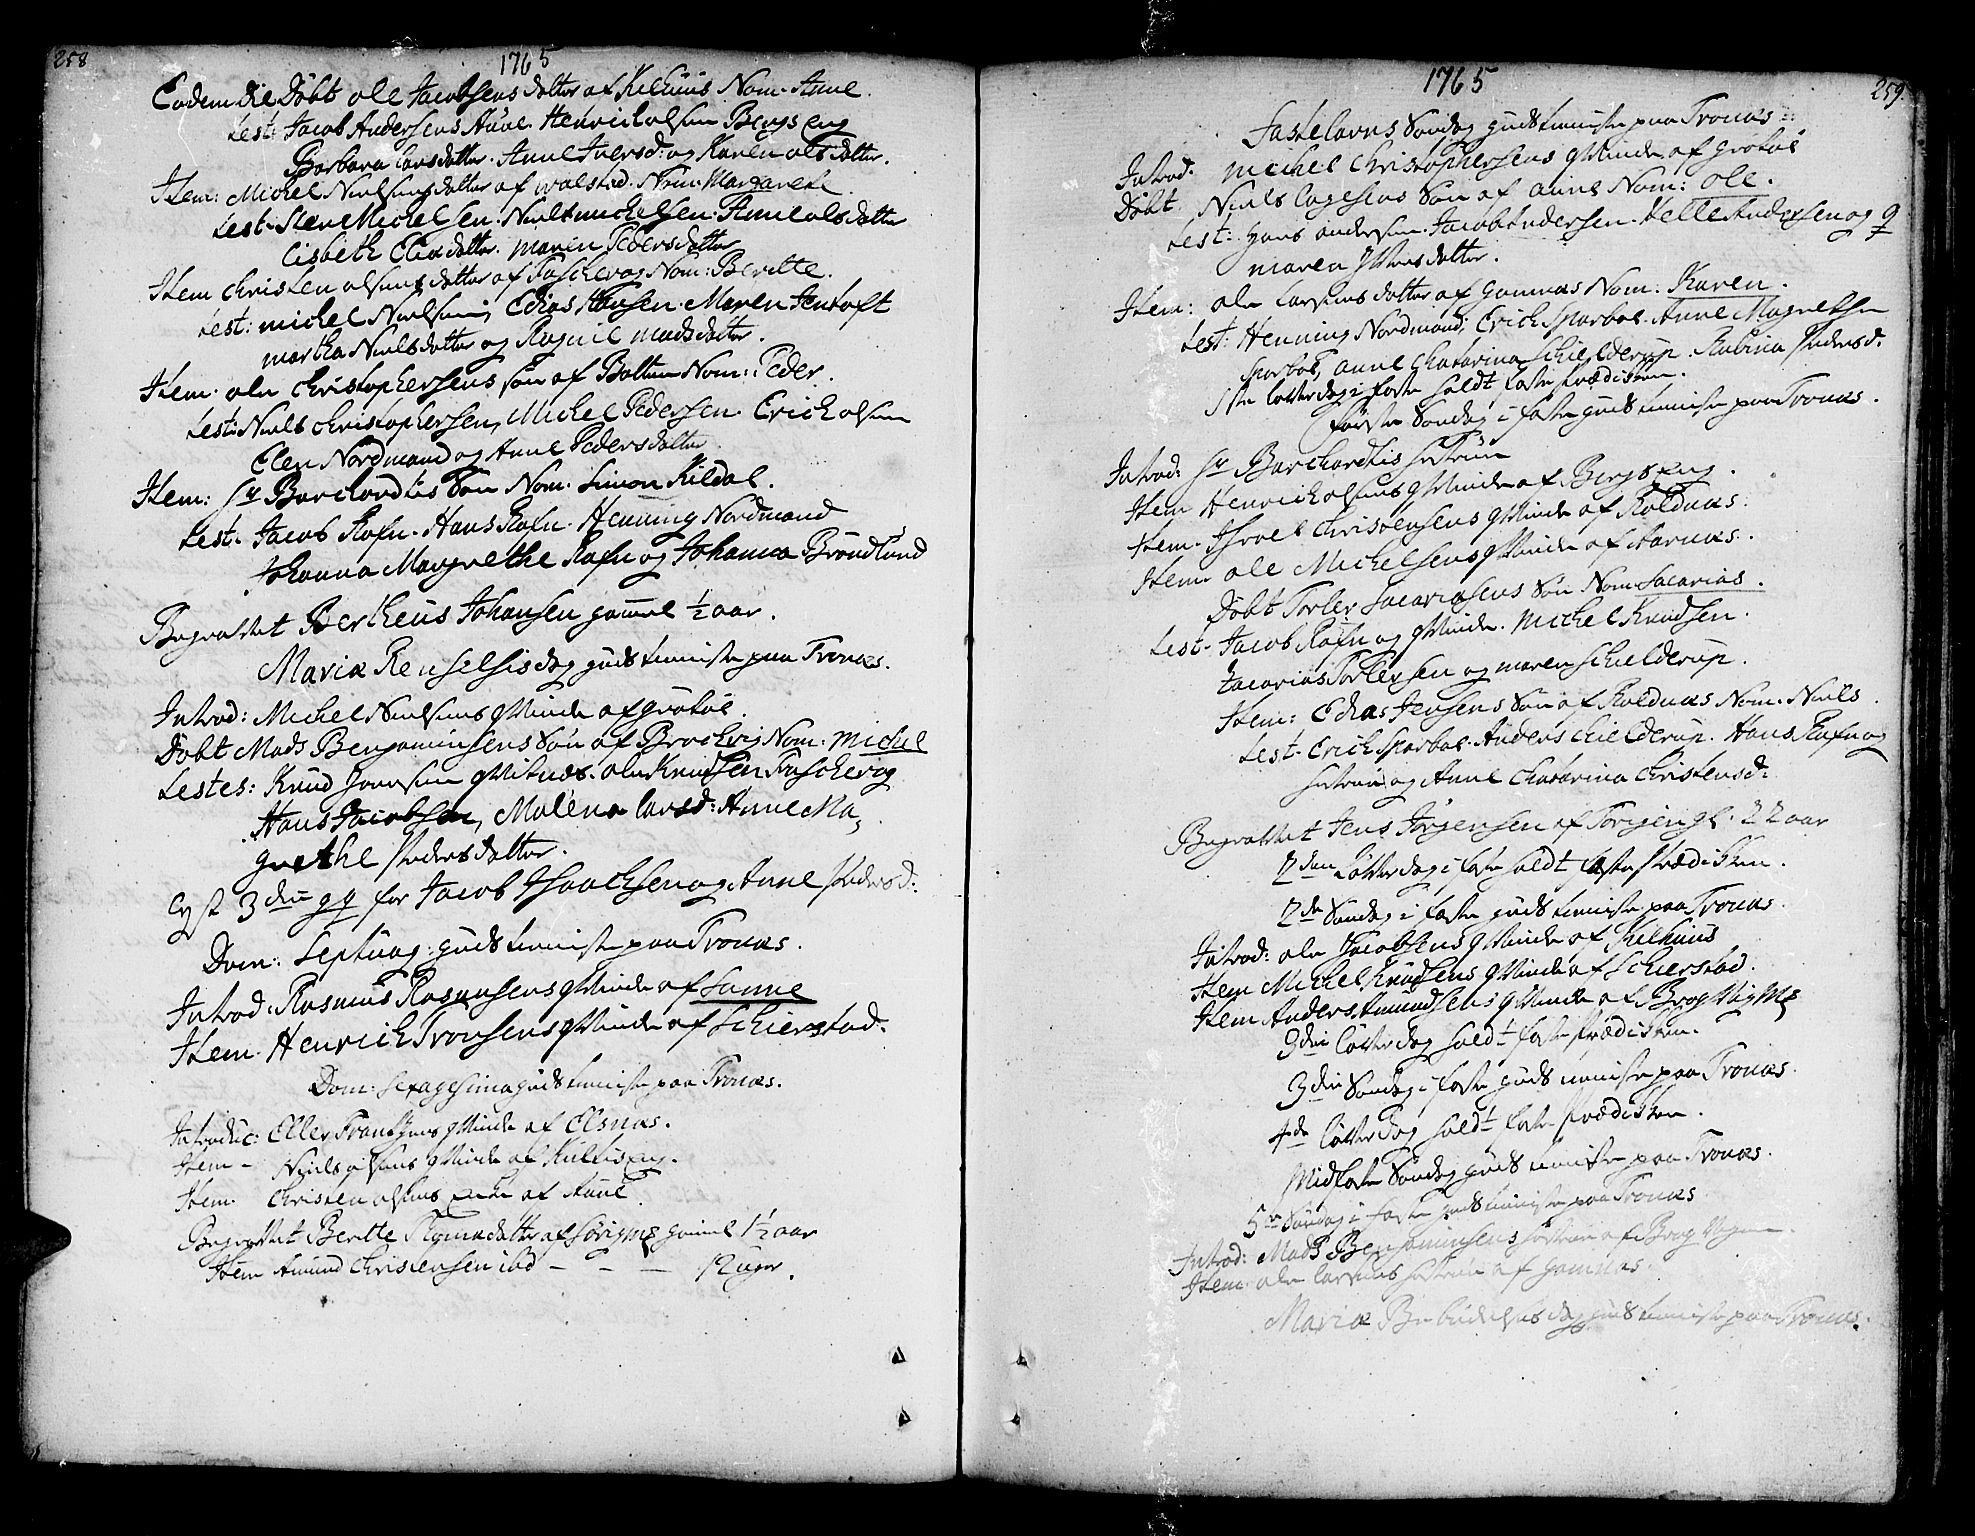 258
1765
Eodem die Döbt ole Jacobsens datter af Kilhuus Nom. Anne.
test: Jacob Andersens Aune. Henrich olsen Bergseng
Barbara larsdatter. Anne Iversd: og Karen olsdatter.
Item: Michel Nielsens datter af wolstad. Nom: Margarethe.
test: Sten Michelsen. Niels michelsen. Anne olsdatter
Lisbeth Eliædatter. maren Pedersdatter
Item Christen olsens datter af Faschevog Nom: Berette.
test: michel Nielsen, Elias Hansen. Maren Jentoft
martha Nielsdatter og Ragnil madsdatter.
Item. ole Christophersens sön af Bolten Nom: Peder.
test: Niels Christophersen, Michel Pedersen. Erich olsen
Elen Nordmand og Anne Pedersdatter
Item: Sr Barchardtis Sön Nom. Simon Kildal.
test. Jacob Rafn. Hans Rafn. Henning Nordmand
Johanna Margrethe Rafn og Johanna Bröndlund
Begravet Bertheus Johansen gamel ½ aar.
Mariæ Renselsis dag gudstieniste paa Tronæs.
Introd: Michel Nielsens qvinde af grötöe.
Döbt Mads Benjaminsens Sön af Brochvig Nom: michel
Testes: Knud Joensen qvitnæs. ole Knudsen Faschevog
Hans Jacobsen, Malena larsd: Anne Ma-
grethe Pedersdatter.
Lyst 3die gg for Jacob Isaachsen og Anne Pedersd:
Dom: Septuag: gudstieniste paa Tronæs.
Introd: Rasmus Rasmusens qvinde af Sanne
Item. Henrich Tronsens qvinde af Schierstad.
Dom: Sexagesima gudstieniste paa Tronæs.
Introduc: Eller Frantzens qvinde af Elsnæs.
Item - Niels olsens qvinde af Kultiseng.
Item. Christen olsens af Aune.
Begravet Berette datter af gamel 1½ aar
Item Amund Christensen ibd - - - 12 uger.
259
1765
Fastelavns Söndag gudstieniste paa Tronæs
Introd: michel Christophersens qvinde af grötöe
Döbt. Niels lagesens Sön af aune Nom: Ole.
test: Hans andersen. Jacob Andersen. Helle Andersen og q
maren datter.
Item: ole larsens datter af gamnæs Nom: Karen.
test: Henning Nordmand, Erich Sparboe. Anne Magrethe
Sparboe, anne Chatarina Schielderup. Rubina Pedersd.
1ste löverdag i faste holdt faste Prædichen.
förste Söndag i faste gudstieniste paa Tronæs.
Introd: Sr Barchardtis hustrue
Item Henrich olsens qvinde af Bergseng.
Item. Isroel Christensens qvinde af Roldnæs.
Item ole Michelsens qvinde af Aarnæs.
Döbt Torler Sacariasens Sön Nom Sacarias.
test. Jacob Rafn og qvinde. Michel Knudsen.
Zacarias Torlersen og maren Schielderup.
Item: Elias Jensens Sön af Roldnæs Nom: Niels.
test. Erich Sparboe. Anders Schielderup. Hans Rafn og
hustrue og Anne Chatarina Christensd:
Begravet Jens Jörgensen af gl. 22 aar
2den Löverdag i faste holdt faste Prædichen.
2de Söndag i faste gudstieniste paa Tronæs.
Introd: ole Jacobsens qvinde af Kilhuus
Item Michel Knudsens qvinde af Schierstad.
Item Anders Amundsens qvinde af
3die löverdag holdt faste Prædichen.
3die Söndag i faste gudstieniste paa Tronæs.
4de löverdag holdt faste Prædichen.
Midfaste Söndag gudstieniste paa Tronæs.
5te Söndag i faste gudstieniste paa Tronæs
Introd: Mads Benjaminsens hustrue af
Item: ole larsens hustrue af gamnæs.
Mariæ Bebudelses dag gudstieniste paa Tronæs.